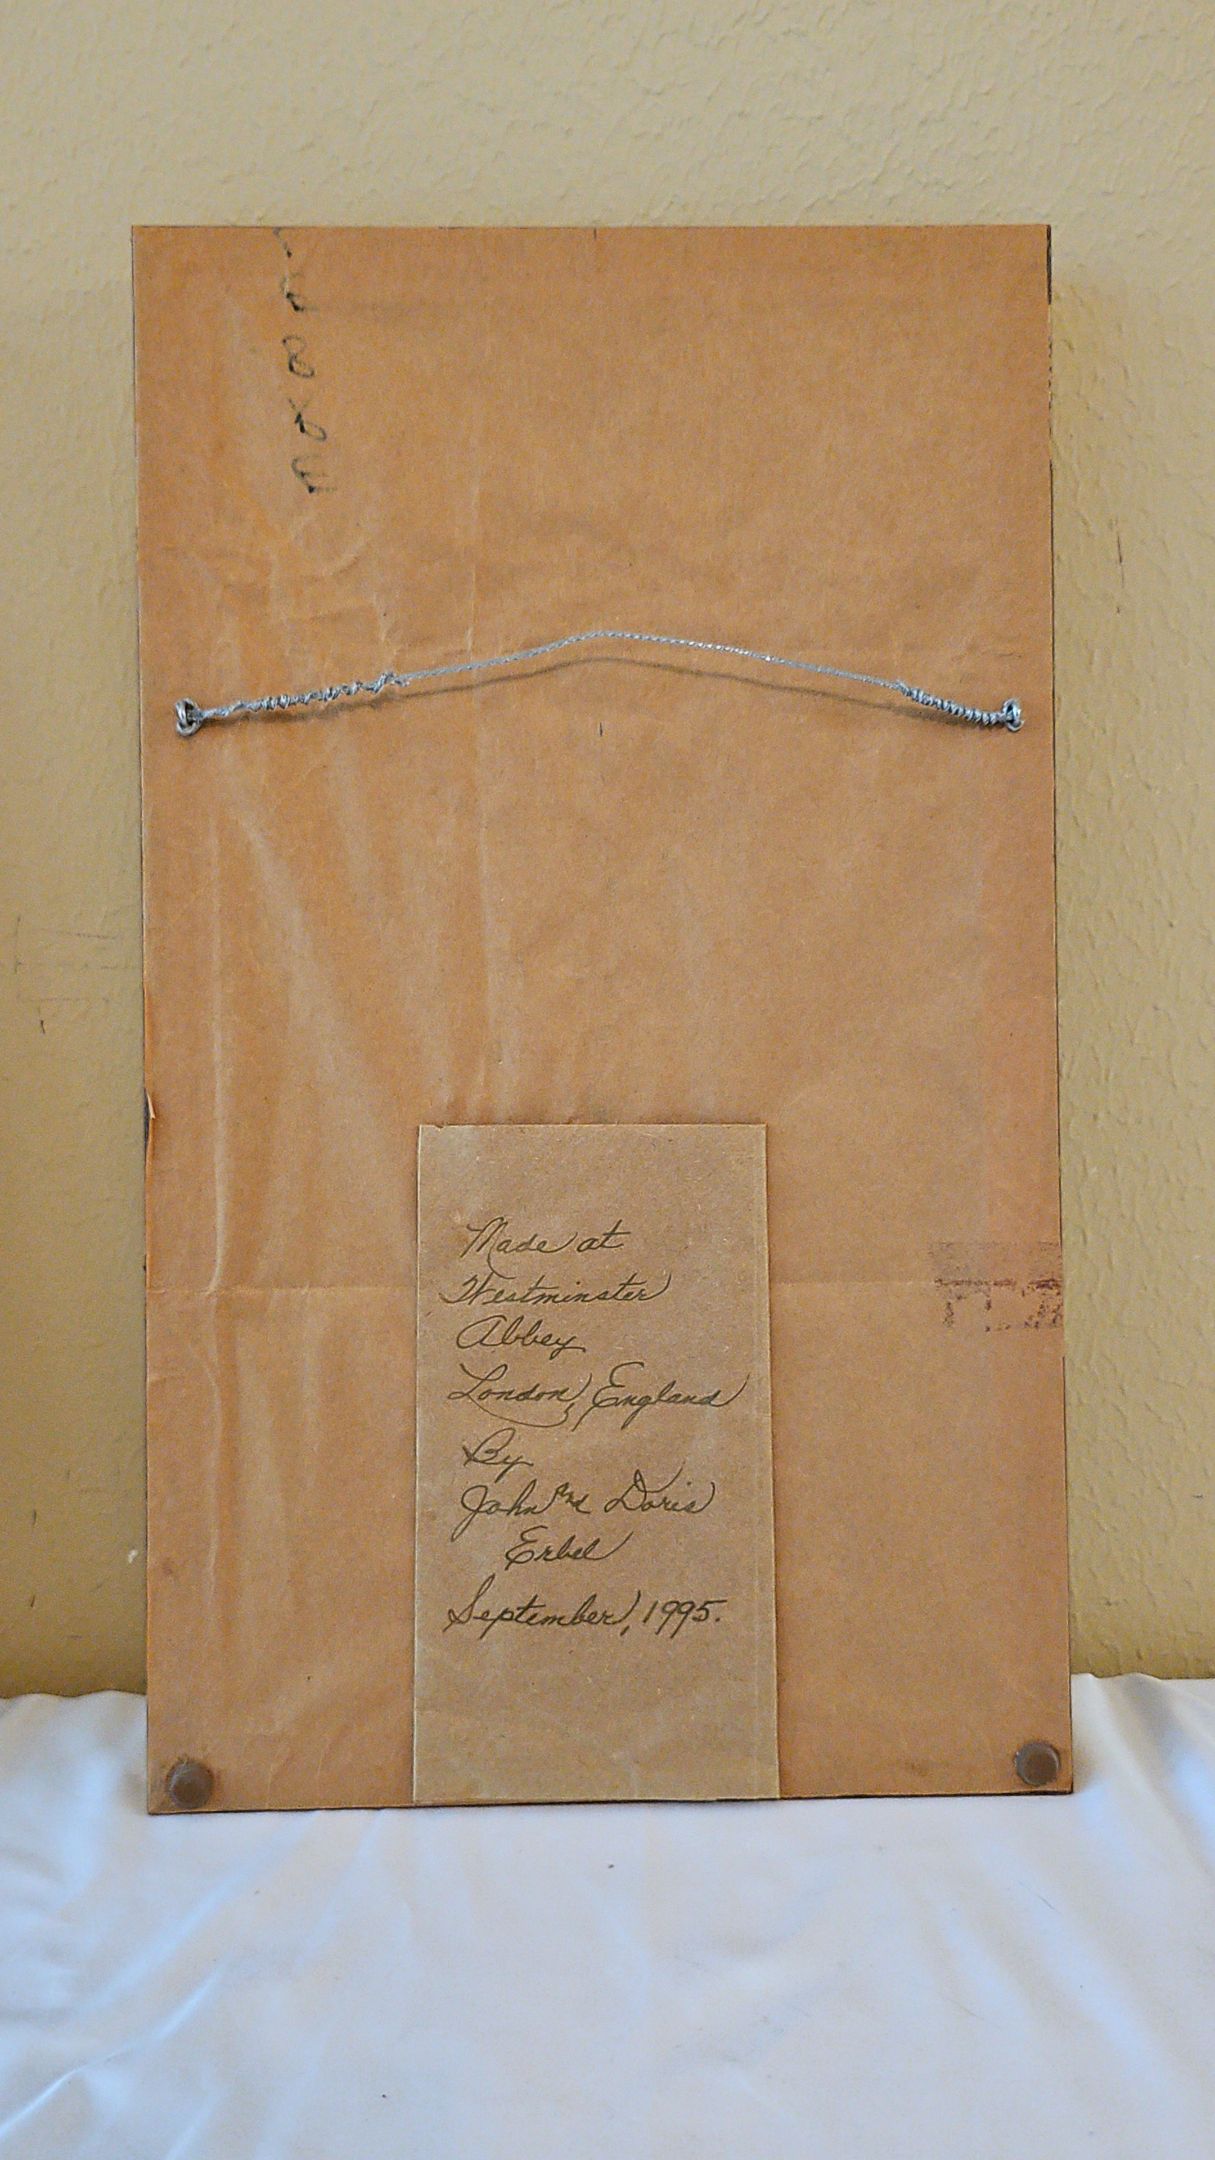 Made at
Westminster
Abbey
London, England
By
John and Doris
Erbel
September, 1995.